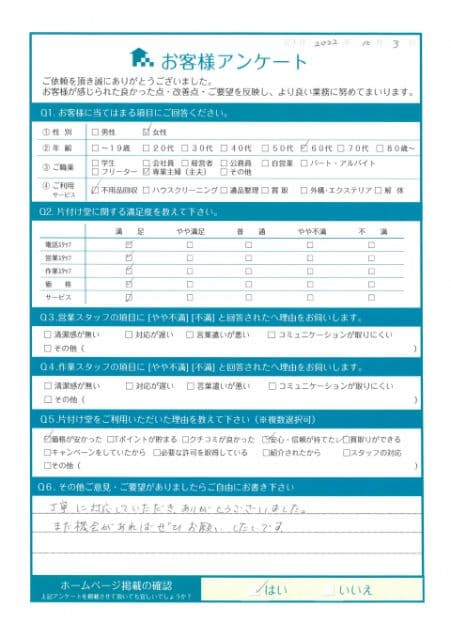 2022 10 3
お客様アンケート
ご依頼を頂き誠にありがとうございました。
お客様が感じられた良かった点・改善点・ご要望を反映し、より良い業務に努めてまいります。
Q1. お客様に当てはまる項目にご回答ください。
① 性別 □男性 ☑女性
② 年齢 □～19歳 □20代 □30代 □40代 □50代 ☑60代 □70代 □80歳～
③ ご職業 □学生 □会社員 □経営者 □公務員 □自営業 □パート・アルバイト
□フリーター ☑専業主婦（主夫） □その他
④ ご利用サービス ☑不用品回収 □ハウスクリーニング □遺品整理 □買取 □外構・エクステリア □解体
Q2. 片付け堂に関する満足度を教えて下さい。
満足 やや満足 普通 やや不満 不満
電話スタッフ ☑ □ □ □ □
営業スタッフ ☑ □ □ □ □
作業スタッフ ☑ □ □ □ □
価格 ☑ □ □ □ □
サービス ☑ □ □ □ □
Q3. 営業スタッフの項目に [やや不満] [不満] と回答されたへ理由をお伺いします。
□清潔感が無い □対応が遅い □言葉遣いが悪い □コミュニケーションが取りにくい
□その他（ ）
Q4. 作業スタッフの項目に [やや不満] [不満] と回答されたへ理由をお伺いします。
□清潔感が無い □対応が遅い □言葉遣いが悪い □コミュニケーションが取りにくい
□その他（ ）
Q5. 片付け堂をご利用いただいた理由を教えて下さい（※複数選択可）
☑価格が安かった □Tポイントが貯まる □クチコミが良かった ☑安心・信頼が持てた ☑買取りができる
□キャンペーンをしていたから □必要な許可を取得している □紹介されたから □スタッフの対応
□その他（ ）
Q6. その他ご意見・ご要望がありましたらご自由にお書き下さい
丁寧に対応していただき、ありがとうございました。
また機会があればぜひお願いしたいです。
ホームページ掲載の確認 ☑はい いいえ
上記アンケートを掲載させて頂いても宜しいでしょうか？